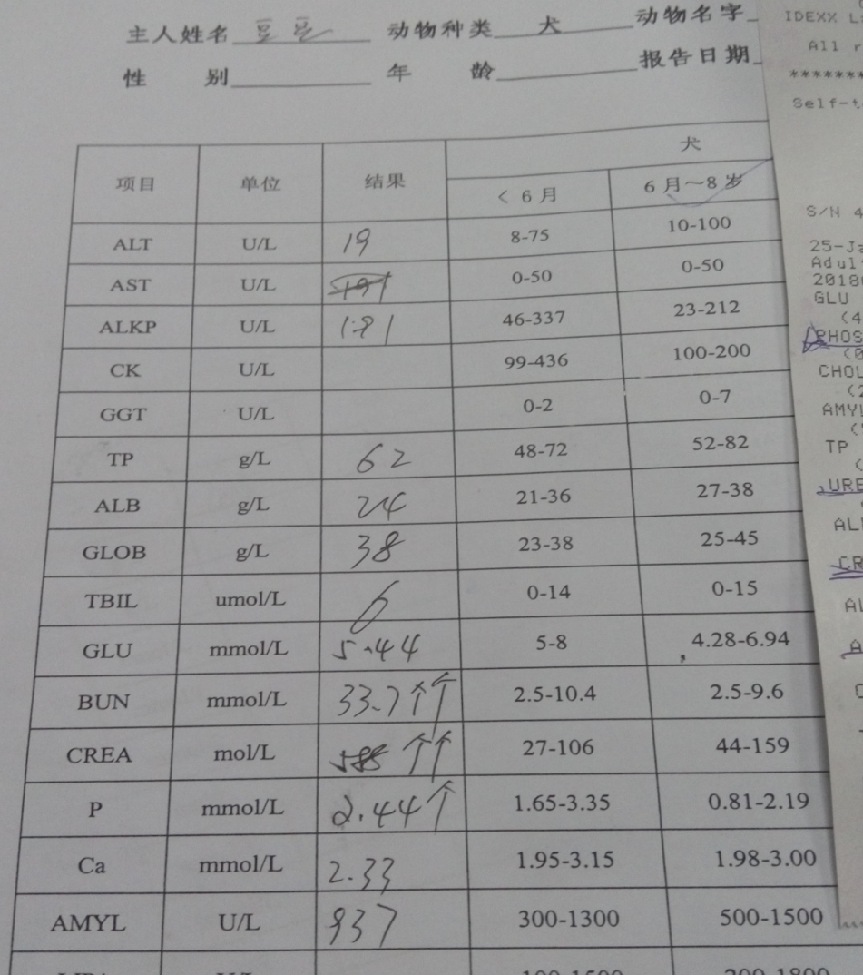 主人姓名 豆豆 动物种类 犬 动物名字
性 别 年 龄 报告日期
项目 单位 结果 犬
< 6 月 6 月～8 岁
ALT U/L 19 8-75 10-100
AST U/L 0-50 0-50
ALKP U/L 181 46-337 23-212
CK U/L 99-436 100-200
GGT U/L 0-2 0-7
TP g/L 62 48-72 52-82
ALB g/L 24 21-36 27-38
GLOB g/L 38 23-38 25-45
TBIL umol/L 6 0-14 0-15
GLU mmol/L 5.44 5-8 4.28-6.94
BUN mmol/L 33.7↑↑ 2.5-10.4 2.5-9.6
CREA mol/L ↑↑ 27-106 44-159
P mmol/L 2.44↑ 1.65-3.35 0.81-2.19
Ca mmol/L 2.33 1.95-3.15 1.98-3.00
AMYL U/L 937 300-1300 500-1500
IDEXX L
All r
*******
Self-t
S/N 4
25-Ja
Adul
2018
GLU
(4
PHOS
(0
CHOL
(2
AMY
TP
(
URE
AL
CR
AL
A